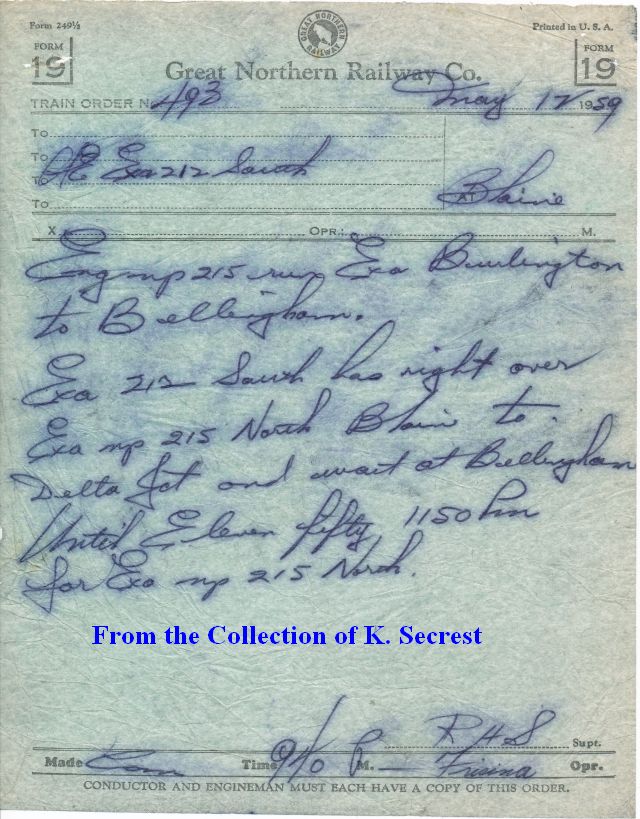 Form 249½
Printed in U. S. A.
GREAT NORTHERN RAILWAY
FORM 19
FORM 19
Great Northern Railway Co.
TRAIN ORDER No. 493 May 12 1959
To
To
To C&E Exa 212 South
To AT Blaine
X OPR.: M.
Eng np 215 run Exa Burlington
to Bellingham.
Exa 212 South has right over
Exa np 215 North Blaine to
Delta Jct and wait at Bellingham
Until Eleven fifty 1150 pm
for Exa np 215 North.
From the Collection of K. Secrest
R H S Supt.
Made Com Time 910 P M. Opr.
CONDUCTOR AND ENGINEMAN MUST EACH HAVE A COPY OF THIS ORDER.